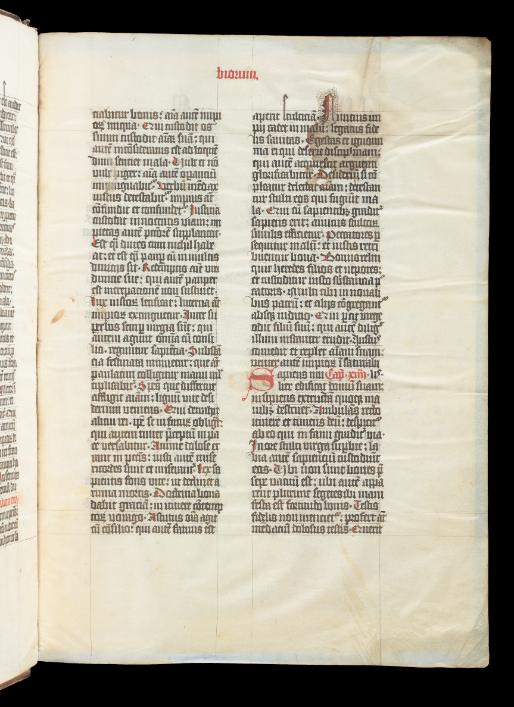 biorum.
ciabitur bonis: aīa autē impi
oꝝ iniqua. Qui custodit os
suum custodit aīam suā: qui
autē incōsideratus est ad loquē
dum sentiet mala. Vult et nō
vult piger: aīa autē operantiū
inpinguabitꝰ. Verbū mēdax
iustus detestabitꝰ: impius aūt
cōfundit et confundetꝰ. Iusticia
custodit innocentis viam: im
pietas autē pctōrē supplantat.
Est qͥ diues cum nichil habe
at: et est qͥ pauꝑ cū in multis
diuicijs sit. Redemptio aīe viri
diuicie sue: qui autē pauper
est increpationē non sustinet.
Lux iustoꝝ letificat: lucerna aūt
impioꝝ extinguetur. Inter su
perbos semꝑ iurgia sūt: qui
autem agūt omīa cū consi
lio, regūntur sapiētia. Substā
cia festinata minuetur: que aūt
paulatim colligetur manu ml
tiplicabitꝰ. Spes que differtur
affligit aīam: lignū vite desi
derium veniens. Qui detrahit
alicui rei. ipē se in futuꝝ obligat:
qui autem timet preceptū in pa
ce versabitur. Anime dolose er
rant in pctīs: iusti autē mise
ricordes sunt et miserantꝰ. Lex sa
pientis fons vite: ut declinet a
ruina mortis. Doctrina bona
dabit graciā: in itinere cōtemp
toꝝ vorago. Astutus oīa agit
cū cōsilio: qui autē fatuus est
aperit stulticiā. Nuncius im
pij cadet in malū: legatus fide
lis sanitas. Egestas et ignomi
nia ei qui deserit disciplinam:
qui autē acquiescit arguenti
glorificabitur. Desideriū si cō
pleatur delectat aīam: detestan
tur stulti eos qui fugiūt ma
la. Qui cū sapientibꝫ graditꝰ
sapiens erit: amicus stultoꝝ
similis efficietur. Peccatores ꝑ
sequitur malū: et iustis retri
buentur bona. Bonus relin
quit heredes filios et nepotes:
et custoditur iusto substancia p
catoris. Multi cibi in noualibꝫ
bus patrū: et alijs cōgregantꝰ
absqꝫ iudicio. Qui ꝑcit virge
odit filiū suū: qui autē diligit
illum instanter erudit. Iustus
comedit et replet aīam suam:
venter autē impioꝝ īsaturabilꝭ.
Sapiens mu Capͫ. xiiij. li⸗
lier edificat domū suam:
insipiens extructā quoqꝫ ma
nibꝫ destruet. Ambulās recto
itinere et timens deū: despicitꝰ
ab eo qui in fami graditꝰ via.
In ore stulti virga supbie: la
bia autē sapientiū custodiūt
eos. Vbi non sunt boues p̄
sepe vacuū est: ubi autē appa
rent plurime segetes ibi mani
festa est fortitudo bouis. Testis
fidelis non mentietꝰ: profert aūt
mendaciū dolosus testis. Querit